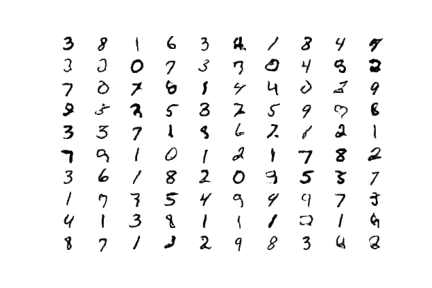 3 8 1 6 3 2 1 8 4 7
3 2 0 7 3 7 0 4 9 2
7 0 7 6 1 4 4 0 2 9
9 5 2 5 3 7 5 9 8
3 3 7 1 8 6 2 1 2 1
7 9 1 0 1 2 1 7 8 2
3 6 1 8 2 0 9 5 3 7
1 7 3 5 4 9 9 9 7 3
4 1 3 8 1 1 1 2 1 9
8 7 1 3 2 9 8 3 4 2